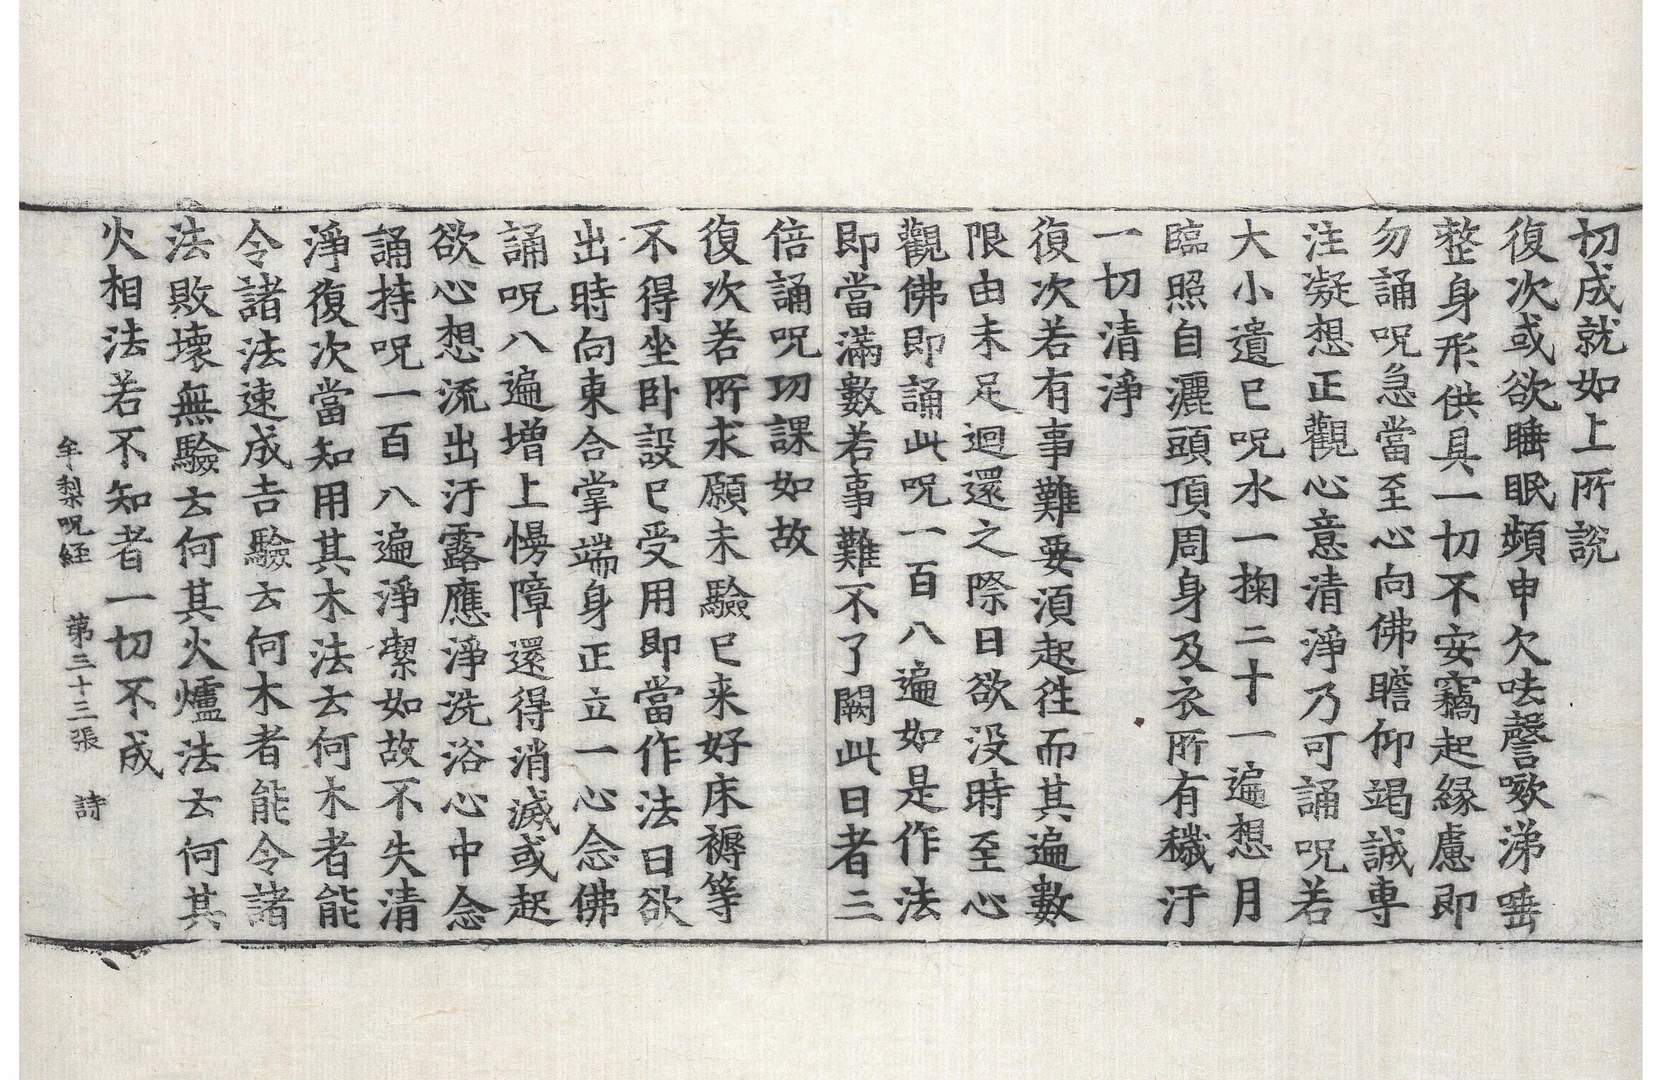 切成就如上所說
復次或欲睡眠頻申欠呿謦嗽涕唾
整身形供具一切不安竊起緣慮即
勿誦呪急當至心向佛瞻仰竭誠專
注凝想正觀心意清淨乃可誦呪若
大小遺已呪水一掬二十一遍想月
臨照自灑頭頂周身及衣所有穢汙
一切清淨
復次若有事難要須起往而其遍數
限由未足迴還之際日欲没時至心
觀佛即誦此呪一百八遍如是作法
即當滿數若事難不了闕此日者三
倍誦呪功課如故
復次若所求願未驗已来好床褥等
不得坐卧設已受用即當作法日欲
出時向東合掌端身正立一心念佛
誦呪八遍增上慢障還得消滅或起
欲心想流出汙露應淨洗浴心中念
誦持呪一百八遍淨潔如故不失清
淨復次當知用其木法云何木者能
令諸法速成吉驗云何木者能令諸
法敗壞無驗云何其火爐法云何其
火相法若不知者一切不成
牟梨呪経　第三十三張　詩